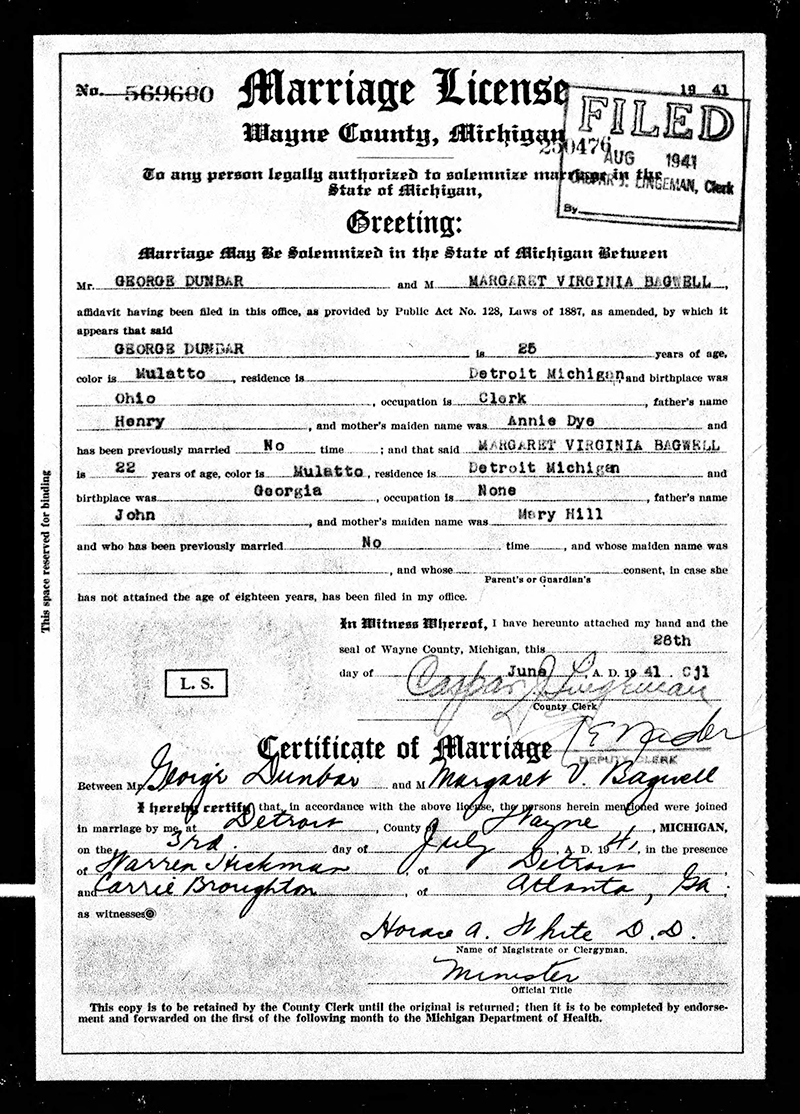 No. 569600 Marriage License 19 41
Wayne County, Michigan
FILED
250476
AUG 1941
CASPAR J. LINGEMAN, Clerk
By
To any person legally authorized to solemnize marriage in the
State of Michigan,
Greeting:
Marriage May Be Solemnized in the State of Michigan Between
Mr. GEORGE DUNBAR and M MARGARET VIRGINIA BAGWELL,
affidavit having been filed in this office, as provided by Public Act No. 128, Laws of 1887, as amended, by which it
appears that said
GEORGE DUNBAR is 25 years of age,
color is Mulatto, residence is Detroit Michigan, and birthplace was
Ohio, occupation is Clerk, father's name
Henry, and mother's maiden name was Annie Dye and
has been previously married No time; and that said MARGARET VIRGINIA BAGWELL
is 22 years of age, color is Mulatto, residence is Detroit Michigan and
birthplace was Georgia, occupation is None, father's name
John, and mother's maiden name was Mary Hill
and who has been previously married No time, and whose maiden name was
, and whose consent, in case she
Parent's or Guardian's
has not attained the age of eighteen years, has been filed in my office.
In Witness Whereof, I have hereunto attached my hand and the
seal of Wayne County, Michigan, this 28th
day of June, A. D. 19 41. cjl
L. S.
Caspar J. Lingeman
County Clerk
DEPUTY CLERK
Certificate of Marriage
Between Mr. George Dunbar and M Margaret V. Bagwell
I hereby certify that, in accordance with the above license, the persons herein mentioned were joined
in marriage by me, at Detroit, County of Wayne, MICHIGAN,
on the 3rd. day of July A. D. 1941, in the presence
of Warren Hickman, of Detroit
and Carrie Broughton, of Atlanta, Ga.
as witnesses
Horace A. White D. D.
Name of Magistrate or Clergyman.
Minister
Official Title
This copy is to be retained by the County Clerk until the original is returned; then it is to be completed by endorse-
ment and forwarded on the first of the following month to the Michigan Department of Health.
This space reserved for binding